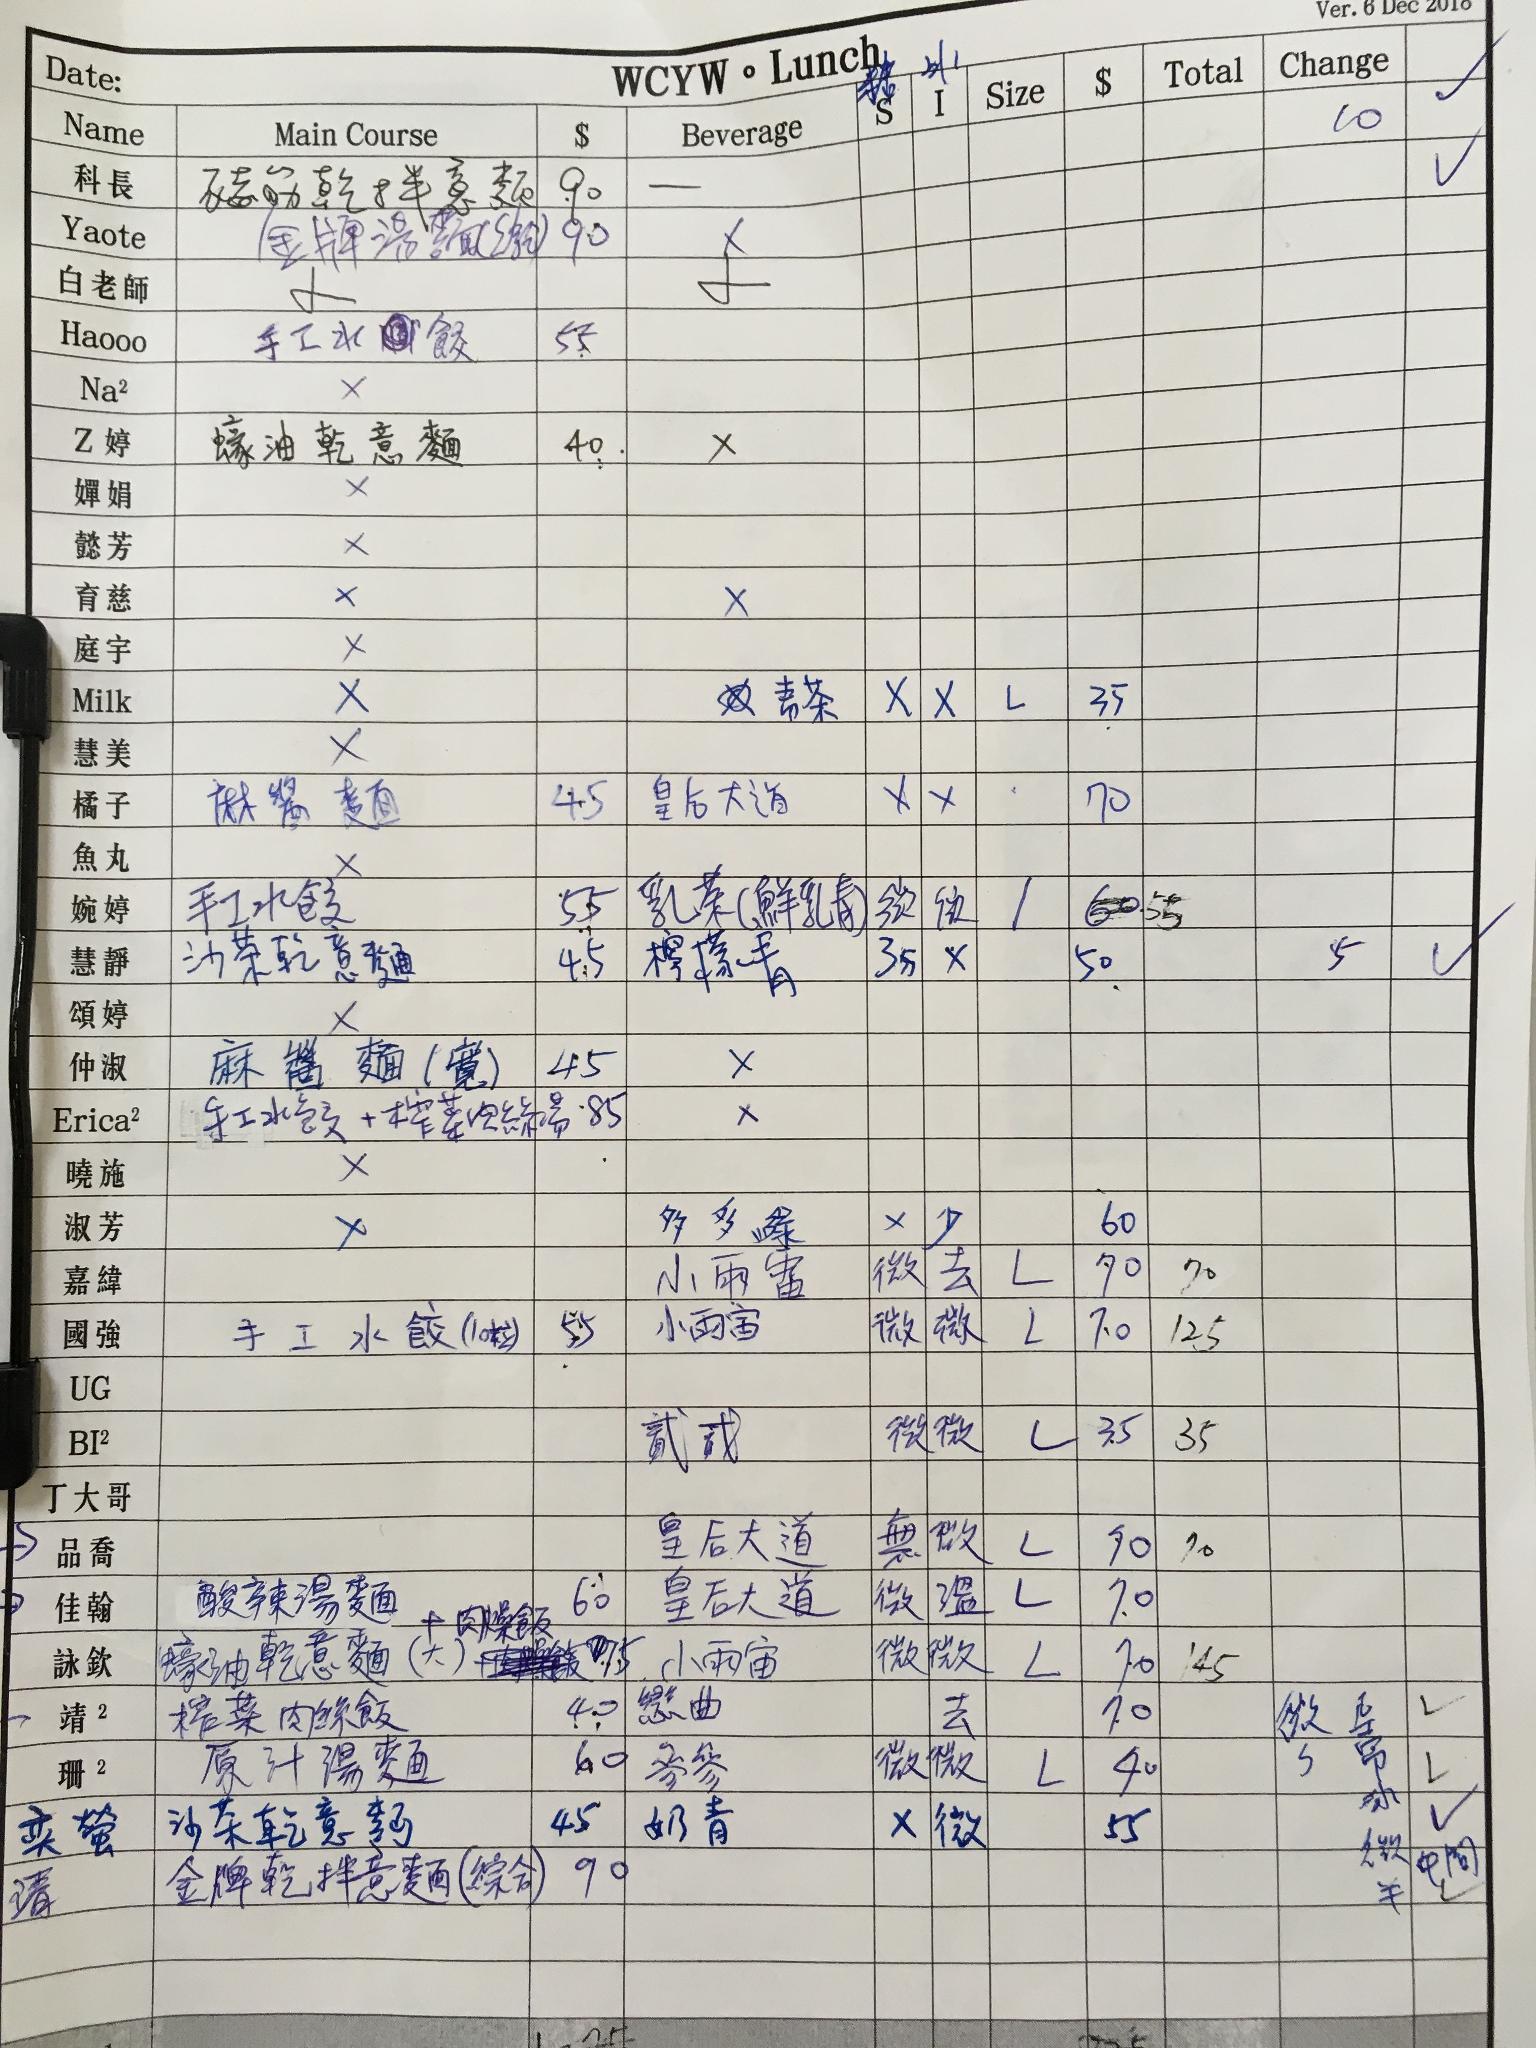 Ver. 6 Dec 2018
Date: WCYW。Lunch 糖 冰
Name Main Course $ Beverage S I Size $ Total Change
10
科長 乾拌意麵 90 —
Yaote 金牌湯麵 90 X
白老師
Haooo 手工水餃 55
Na² X
Z婷 蠔油乾意麵 40 X
嬋娟 X
懿芳 X
育慈 X X
庭宇 X
Milk X 青茶 X X L 35
慧美 X
橘子 麻醬麵 45 皇后大道 X X 70
魚丸 X
婉婷 手工水餃 55 乳茶(鮮乳青) 微 微 55
慧靜 沙茶乾意麵 45 檸檬青 X 50 5
頌婷 X
仲淑 麻醬麵(寬) 45 X
Erica² 手工水餃+榨菜肉絲湯 85 X
曉施 X
淑芳 X 多多 X 少 60
嘉緯 小雨宙 微 去 L 70 70
國強 手工水餃(10粒) 55 小雨宙 微 微 L 70 125
UG
BI² 貳貳 微 微 L 35 35
丁大哥
品喬 皇后大道 無 微 L 70 70
佳翰 酸辣湯麵 60 皇后大道 微 溫 L 70
+肉燥飯
詠欽 蠔油乾意麵(大) 75 小雨宙 微 微 L 70 145
靖² 榨菜肉絲飯 40 戀曲 去 70
珊² 原汁湯麵 60 參參 微 微 L 40
奕螢 沙茶乾意麵 45 奶青 X 微 55
靖 金牌乾拌意麵(綜合) 90